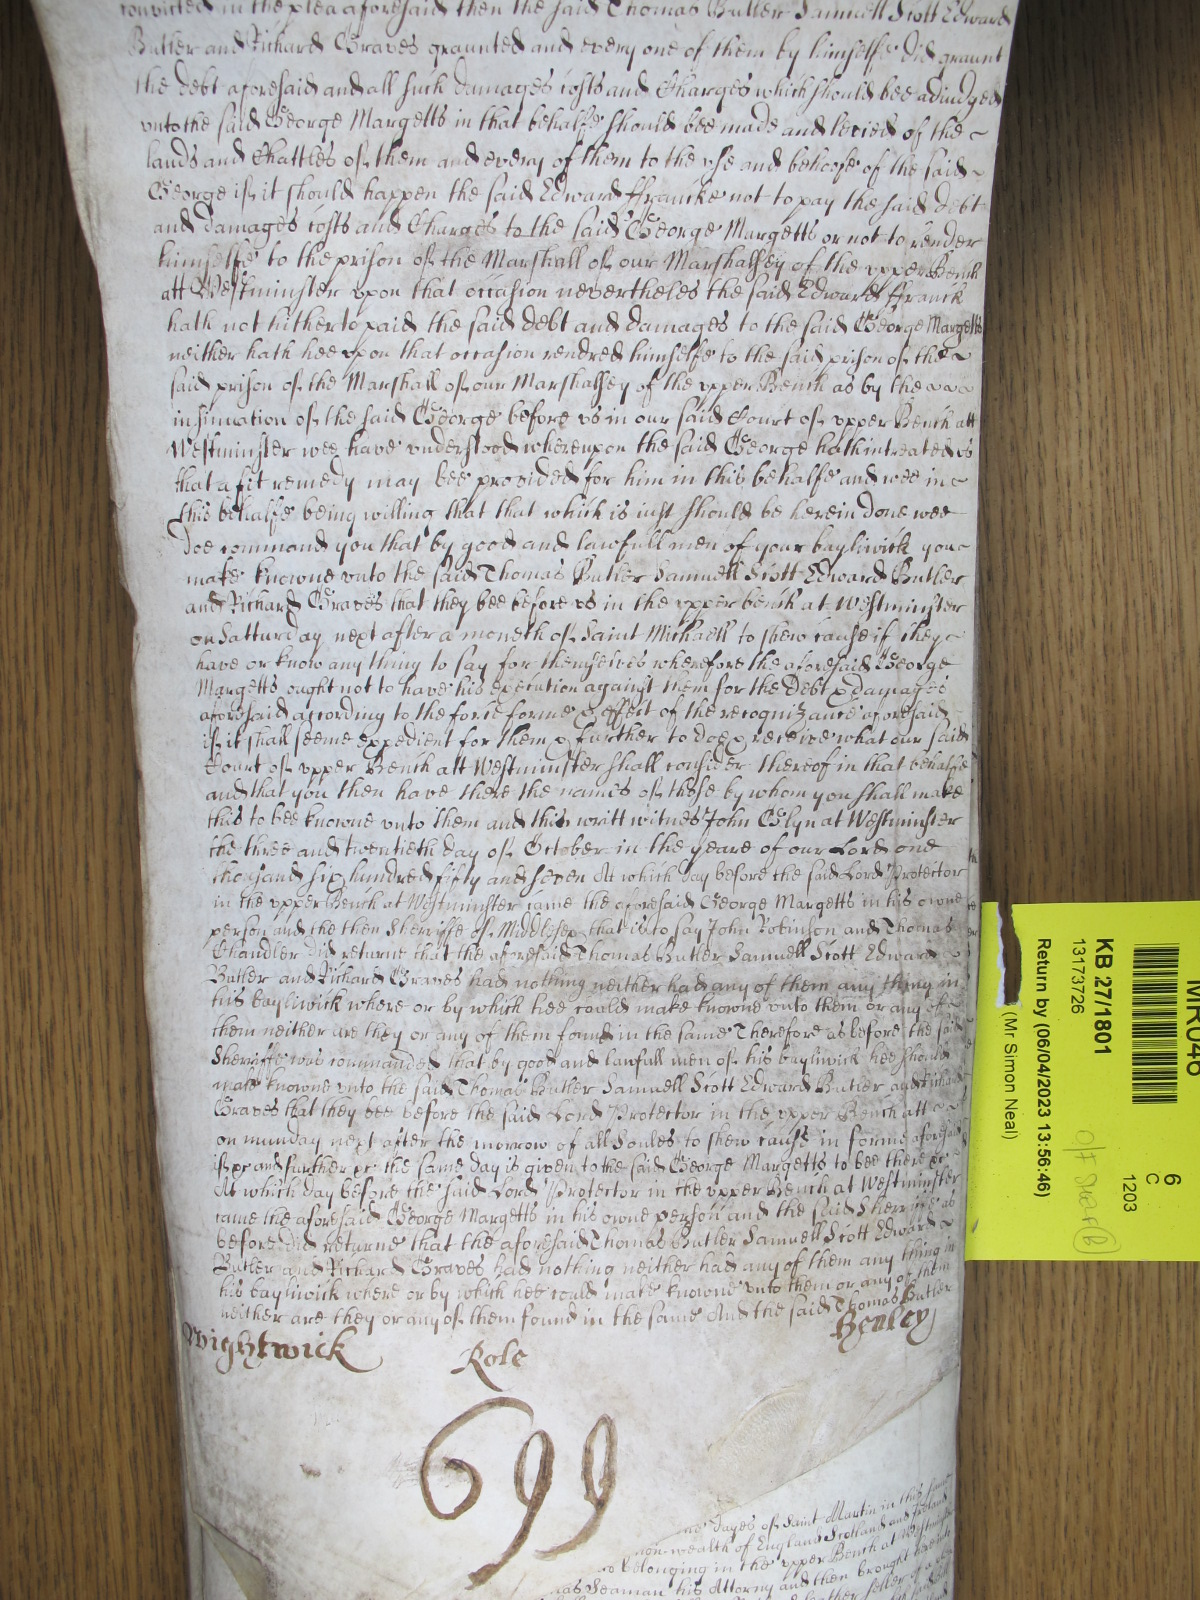 convicted in the plea aforesaid then the said Thomas Butler Samuell Scott Edward
Butler and Richard Graves graunted and every one of them by himselfe did graunt
the debt aforesaid and all such damages costs and Charges which should bee adiudged
unto the said George Margetts in that behalfe should bee made and levied of the
lands and Chattles of them and every of them to the use and behoofe of the said
George if it should happen the said Edward ffrancke not to pay the said debt
and damages costs and Charges to the said George Margetts or not to render
himselfe to the prison of the Marshall of our Marshalsey of the upper Bench
att Westminster upon that occasion nevertheles the said Edward ffranck
hath not hitherto paid the said debt and damages to the said George Margetts
neither hath hee upon that occasion rendred himselfe to the said prison of the
said prison of the Marshall of our Marshalsey of the upper Bench as by the
insinuation of the said George before us in our said Court of upper Bench att
Westminster wee have understood whereupon the said George hath intreated us
that a fit remedy may bee provided for him in this behalfe and wee in
this behalfe being willing that that which is iust should be herein done wee
doe command you that by good and lawfull men of your bayliwick you
make knowne unto the said Thomas Butler Samuell Scott Edward Butler
and Richard Graves that they bee before us in the upper bench at Westminster
on Satturday next after a moneth of Saint Michaell to shew cause if they
have or know any thing to say for themselves wherefore the aforesaid George
Margetts ought not to have his execution against them for the Debt & damages
aforesaid according to the force forme & effect of the recognizance aforesaid
if it shall seeme expedient for them & further to doe & receive what our said
Court of upper Bench att Westminster shall consider thereof in that behalfe
and that you then have there the names of those by whom you shall make
this to bee knowne unto them and this writt witnes John Glyn at Westminster
the three and twentieth day of October in the yeare of our Lord one
thousand six hundred fifty and seven At which day before the said Lord Protector
in the upper Bench at Westminster came the aforesaid George Margetts in his owne
person and the then Sherriffe of Middlesex that is to say John Robinson and Thomas
Chandler did returne that the aforesaid Thomas Butler Samuell Scott Edward
Butler and Richard Graves had nothing neither had any of them any thing in
his bayliwick where or by which hee could make knowne unto them or any of
them neither are they or any of them found in the same Therefore as before the said
Sherriffe was commanded that by good and lawfull men of his bayliwick hee should
make knowne unto the said Thomas Butler Samuell Scott Edward Butler and Richard
Graves that they bee before the said Lord Protector in the upper Bench att
on munday next after the morrow of all Soules to shew cause in forme aforesaid
if &c and further &c the same day is given to the said George Margetts to bee there &c
At which day before the said Lord Protector in the upper Bench at Westminster
came the aforesaid George Margetts in his owne person and the said Sherriffe as
before did returne that the aforesaid Thomas Butler Samuell Scott Edward
Butler and Richard Graves had nothing neither had any of them any thing in
his bayliwick where or by which hee could make knowne unto them or any of them
neither are they or any of them found in the same And the said Thomas Butler
Wightwick Role Henley
699
dayes of Saint Martin in this same
wealth of England Scotland and Ireland
belonging in the upper Bench at Westminster
Seaman his Attorny and then brought here
MR046
6
C
1203
KB 27/1801
13173726
Return by (06/04/2023 13:56:46)
(Mr Simon Neal)